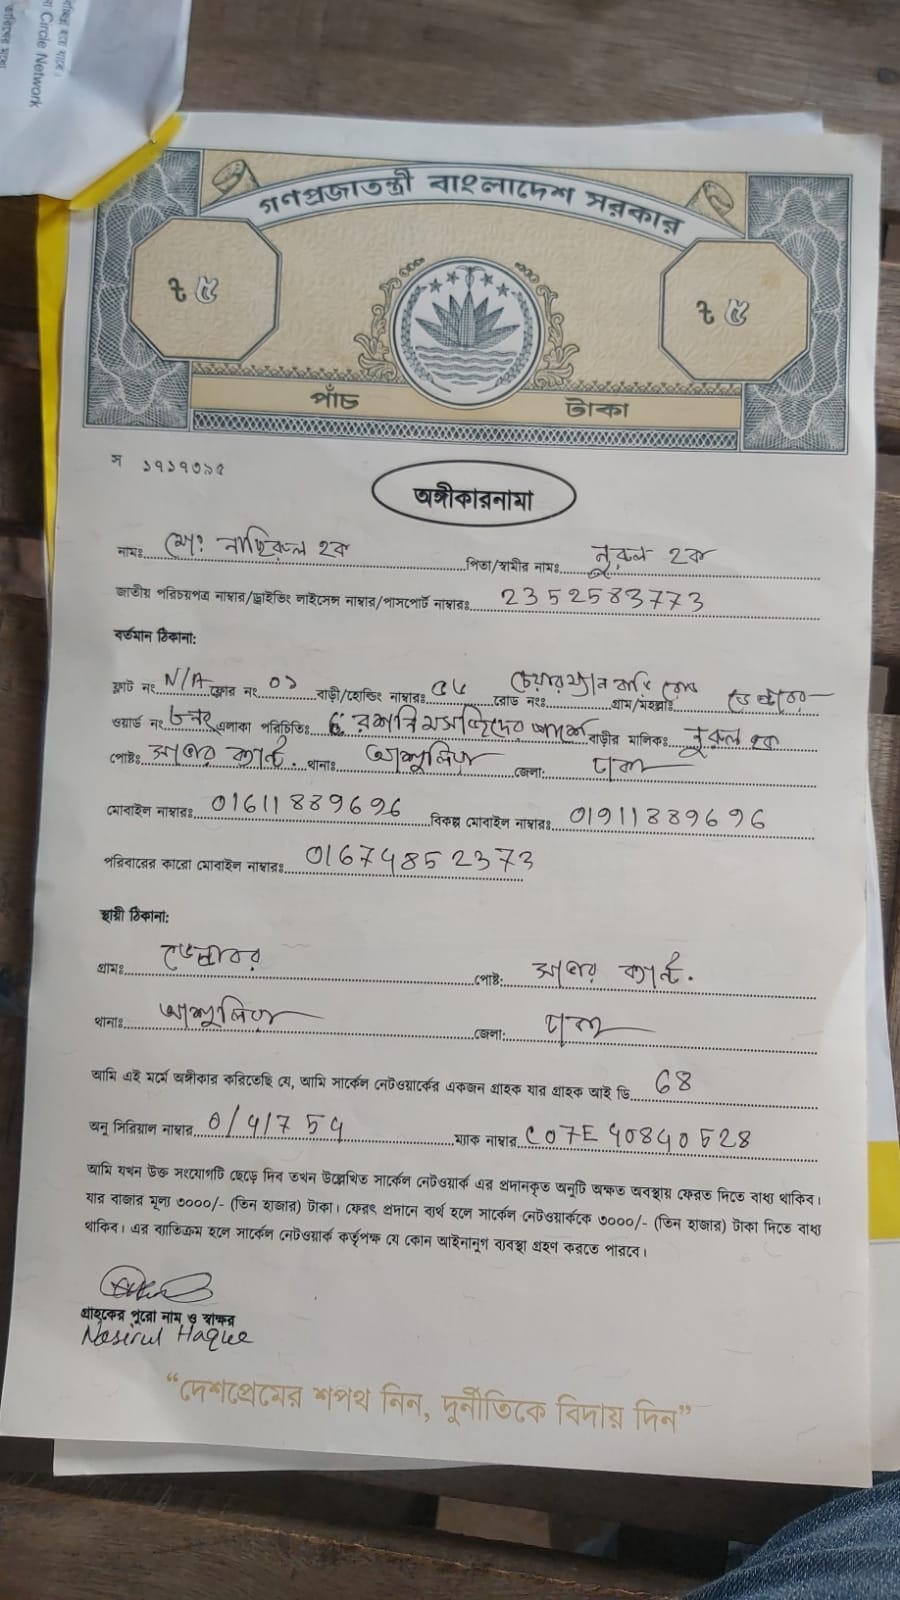 Circle Network
গণপ্রজাতন্ত্রী বাংলাদেশ সরকার
৳ ৫ ৳ ৫
পাঁচ টাকা
স ১৭১৭৩৯৫
অঙ্গীকারনামা
নামঃ মোঃ নাছিরুল হক পিতা/স্বামীর নামঃ নুরুল হক
জাতীয় পরিচয়পত্র নাম্বার/ড্রাইভিং লাইসেন্স নাম্বার/পাসপোর্ট নাম্বারঃ 2352583773
বর্তমান ঠিকানা:
ফ্লাট নং N/A ফ্লোর নং ০১ বাড়ী/হোল্ডিং নাম্বারঃ রোড নংঃ চেয়ারম্যান বাড়ি রোড গ্রাম/মহল্লাঃ
ওয়ার্ড নং এলাকা পরিচিতিঃ মসজিদের পাশে বাড়ীর মালিকঃ নুরুল হক
পোষ্টঃ সাভার ক্যান্ট. থানাঃ আশুলিয়া জেলা: ঢাকা
মোবাইল নাম্বারঃ 01611889696 বিকল্প মোবাইল নাম্বারঃ 01911889696
পরিবারের কারো মোবাইল নাম্বারঃ 01674852373
স্থায়ী ঠিকানা:
গ্রামঃ ডেন্ডাবর পোষ্ট: সাভার ক্যান্ট.
থানাঃ আশুলিয়া জেলা: ঢাকা
আমি এই মর্মে অঙ্গীকার করিতেছি যে, আমি সার্কেল নেটওয়ার্কের একজন গ্রাহক যার গ্রাহক আই ডি 68
অনু সিরিয়াল নাম্বার ম্যাক নাম্বার C07E40840528
আমি যখন উক্ত সংযোগটি ছেড়ে দিব তখন উল্লেখিত সার্কেল নেটওয়ার্ক এর প্রদানকৃত অনুটি অক্ষত অবস্থায় ফেরত দিতে বাধ্য থাকিব।
যার বাজার মূল্য ৩০০০/- (তিন হাজার) টাকা। ফেরৎ প্রদানে ব্যর্থ হলে সার্কেল নেটওয়ার্ককে ৩০০০/- (তিন হাজার) টাকা দিতে বাধ্য
থাকিব। এর ব্যতিক্রম হলে সার্কেল নেটওয়ার্ক কর্তৃপক্ষ যে কোন আইনানুগ ব্যবস্থা গ্রহণ করতে পারবে।
গ্রাহকের পুরো নাম ও স্বাক্ষর
Nasirul Haque
“দেশপ্রেমের শপথ নিন, দুর্নীতিকে বিদায় দিন”